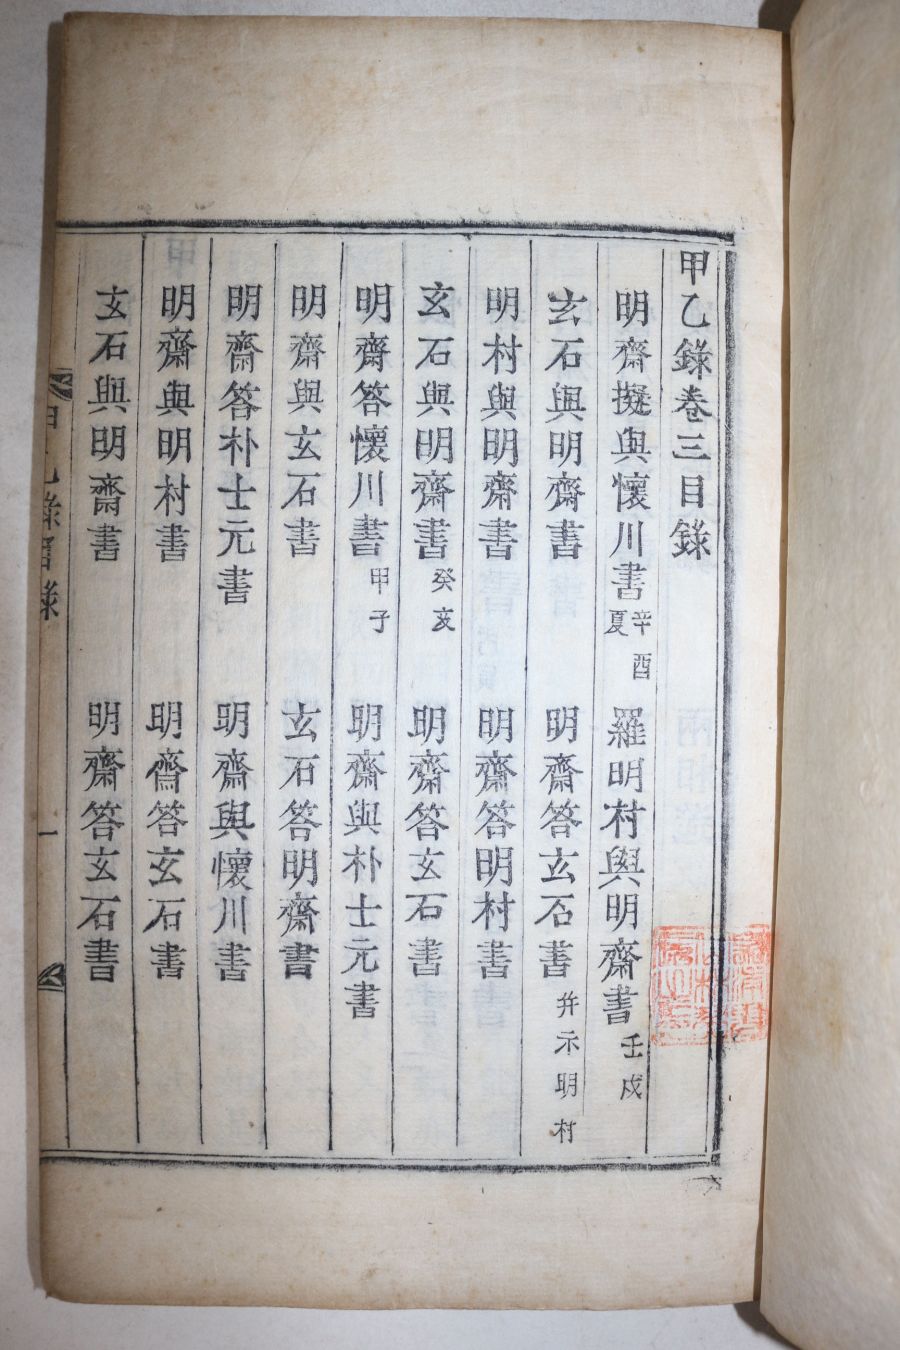 甲乙錄卷三目錄
明齋擬與懷川書 辛酉夏 羅明村與明齋書 壬戌
玄石與明齋書 明齋答玄石書 幷示明村
明村與明齋書 明齋答明村書
玄石與明齋書 癸亥 明齋答玄石書
明齋答懷川書 甲子 明齋與朴士元書
明齋與玄石書 玄石答明齋書
明齋答朴士元書 明齋與懷川書
明齋與明村書 明齋答玄石書
玄石與明齋書 明齋答玄石書
甲乙錄目錄 一